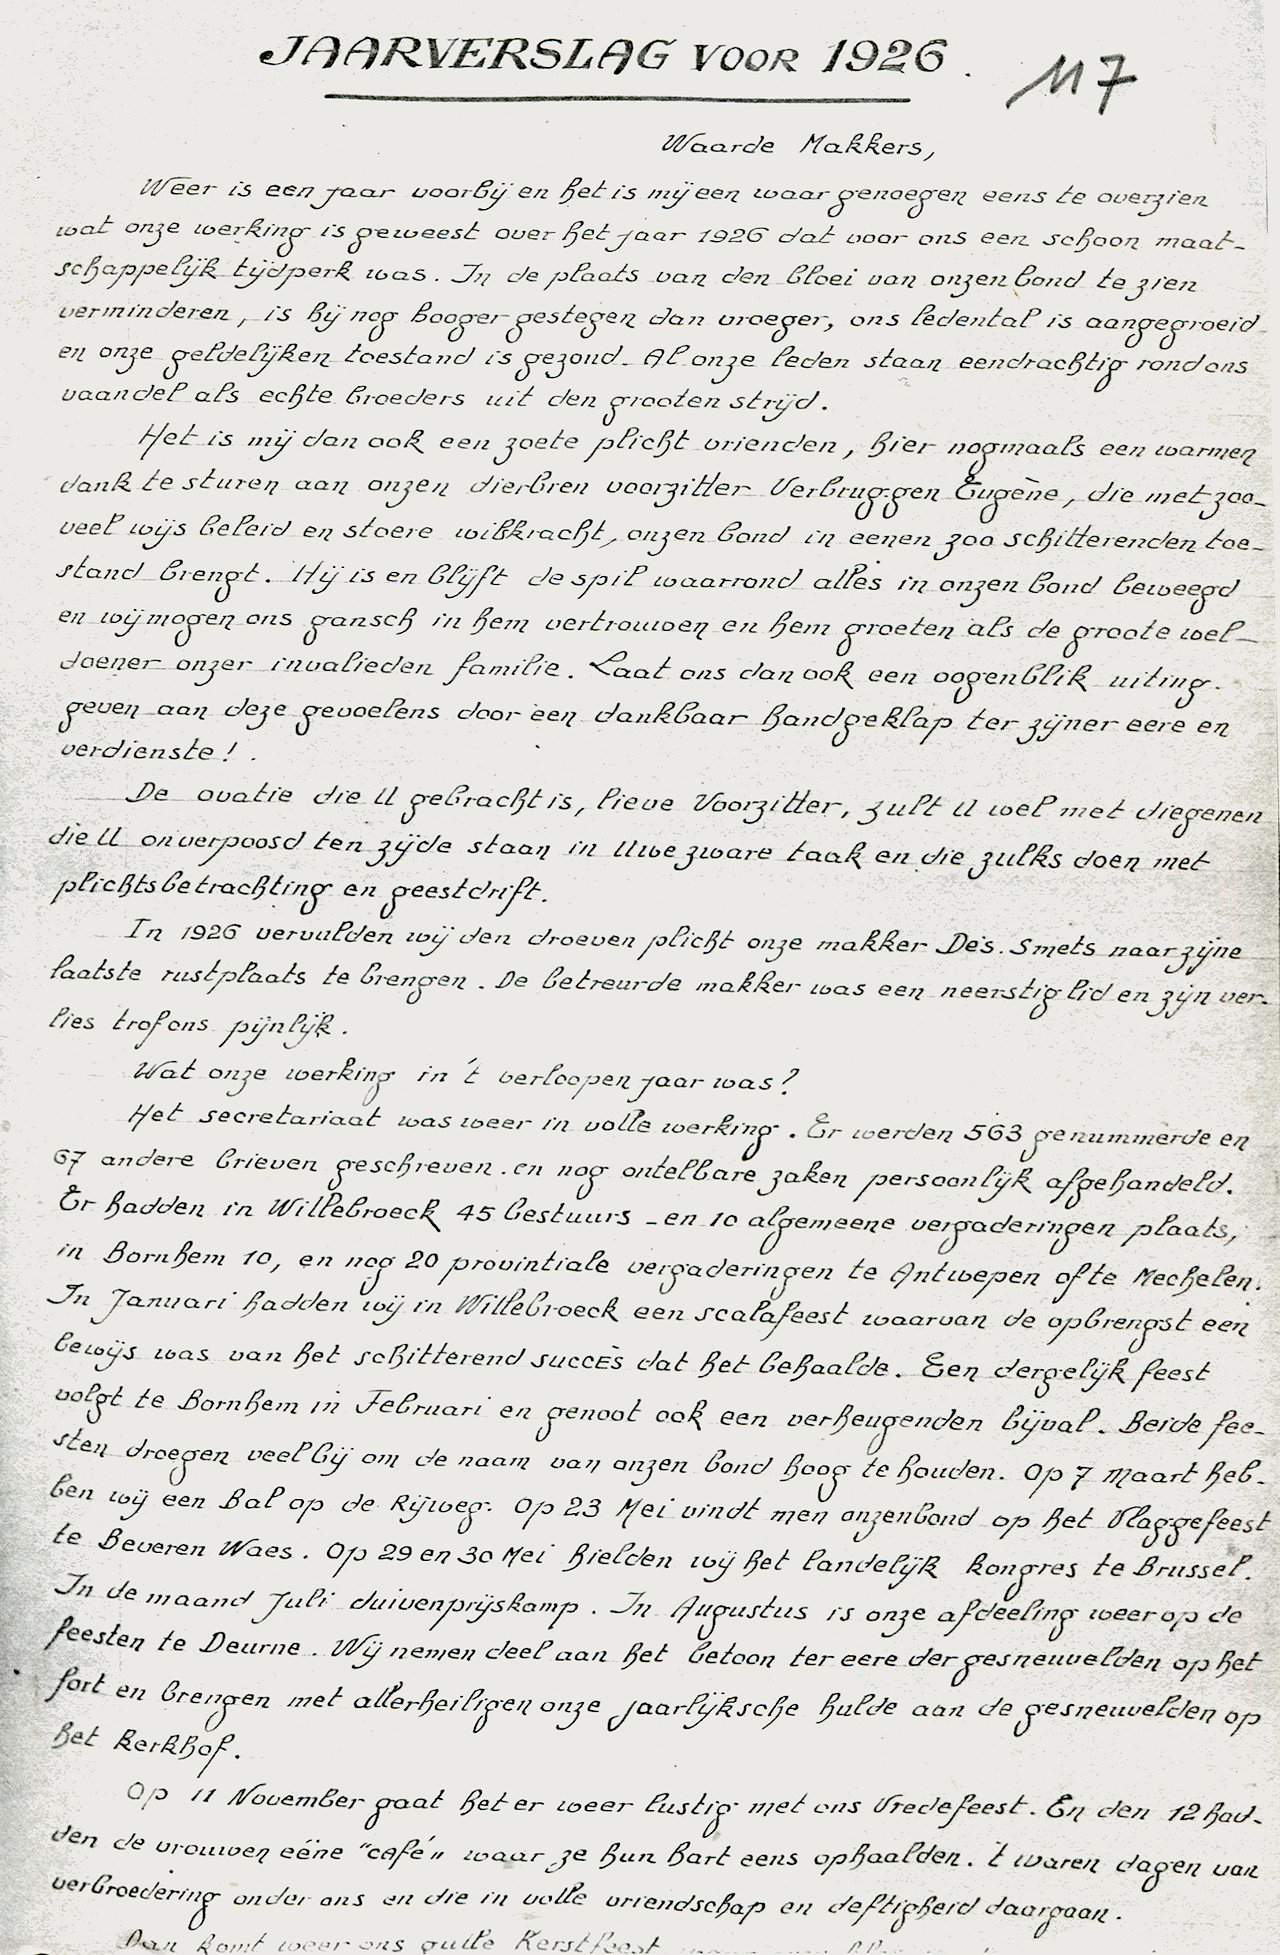 JAARVERSLAG VOOR 1926.
117
Waarde Makkers,
Weer is een jaar voorbij en het is mij een waar genoegen eens te overzien
wat onze werking is geweest over het jaar 1926 dat voor ons een schoon maat-
schappelijk tijdperk was. In de plaats van den bloei van onzen bond te zien
verminderen, is hij nog hooger gestegen dan vroeger, ons ledental is aangegroeid
en onze geldelijken toestand is gezond. Al onze leden staan eendrachtig rond ons
vaandel als echte broeders uit den grooten strijd.
Het is mij dan ook een zoete plicht vrienden, hier nogmaals een warmen
dank te sturen aan onzen dierbren voorzitter Verbruggen Eugène, die met zoo-
veel wijs beleid en stoere wilskracht, onzen bond in eenen zoo schitterenden toe-
stand brengt. Hij is en blijft de spil waarrond alles in onzen bond beweegd
en wij mogen ons gansch in hem vertrouwen en hem groeten als de groote wel-
doener onzer invalieden familie. Laat ons dan ook een oogenblik uiting
geven aan deze gevoelens door een dankbaar handgeklap ter zijner eere en
verdienste!
De ovatie die U gebracht is, lieve Voorzitter, zult U wel met diegenen
die U onverpoosd ten zijde staan in Uwe zware taak en die zulks doen met
plichtsbetrachting en geestdrift.
In 1926 vervulden wij den droeven plicht onze makker Des. Smets naar zijne
laatste rustplaats te brengen. De betreurde makker was een neerstig lid en zijn ver-
lies trof ons pijnlijk.
Wat onze werking in 't verloopen jaar was?
Het secretariaat was weer in volle werking. Er werden 563 genummerde en
67 andere brieven geschreven en nog ontelbare zaken persoonlijk afgehandeld.
Er hadden in Willebroeck 45 bestuurs - en 10 algemeene vergaderingen plaats,
in Bornhem 10, en nog 20 provintiale vergaderingen te Antwepen of te Mechelen.
In Januari hadden wij in Willebroeck een scalafeest waarvan de opbrengst een
bewijs was van het schitterend succès dat het behaalde. Een dergelijk feest
volgt te Bornhem in Februari en genoot ook een verheugenden bijval. Beide fee-
sten droegen veel bij om de naam van onzen bond hoog te houden. Op 7 maart heb-
ben wij een Bal op de Rijweg. Op 23 Mei vindt men onzenbond op het Vlaggefeest
te Beveren Waes. Op 29 en 30 Mei hielden wij het landelijk kongres te Brussel.
In de maand Juli duivenprijskamp. In Augustus is onze afdeeling weer op de
feesten te Deurne. Wij nemen deel aan het betoon ter eere der gesneuvelden op het
fort en brengen met allerheiligen onze jaarlijksche hulde aan de gesneuvelden op
het kerkhof.
Op 11 November gaat het er weer lustig met ons Vredefeest. En den 12 had-
den de vrouwen eéne "café" waar ze hun hart eens ophaalden. 't waren dagen van
verbroedering onder ons en die in volle vriendschap en deftigheid daargaan.
Dan komt weer ons gulle Kerstfeest